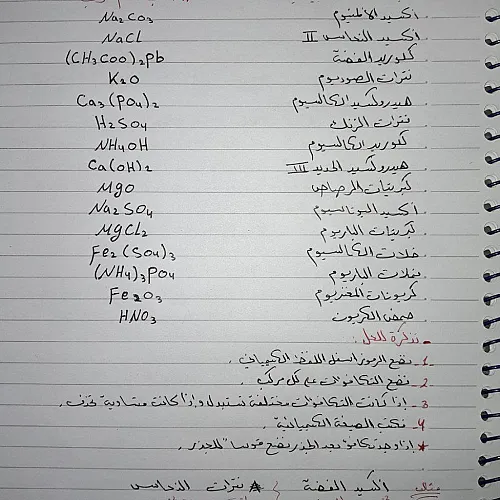 Na2CO3 . أكسيد الألمنيوم
NaCl . أكسيد النحاس II
(CH3COO)2Pb . كلوريد الفضة
K2O . نترات الصوديوم
Ca3(PO4)2 . هيدروكسيد الكالسيوم
H2SO4 . نترات الزنك
NH4OH . كلوريد الكالسيوم
Ca(OH)2 . هيدروكسيد الحديد III
MgO . كبريتات الرصاص
Na2SO4 . أكسيد البوتاسيوم
MgCl2 . كبريتات الباريوم
Fe2(SO4)3 . خلات الكالسيوم
(NH4)3PO4 . خلات الباريوم
Fe2O3 . كربونات المغنزيوم
HNO3 . حمض الكربون
- تذكرة للحل :
1- نضع الرموز أسفل اللفظ الكيميائي .
2- نضع التكافؤات على كل مركب .
3- إذا كانت التكافؤات مختلفة تستبدل وإذا كانت متساوية تحذف .
4- نكتب الصيغة الكيميائية .
* إذا وجد تكافؤ بعد الجذر نضع قوسا" للجذر .
مثال أكسيد الفضة نترات النحاس